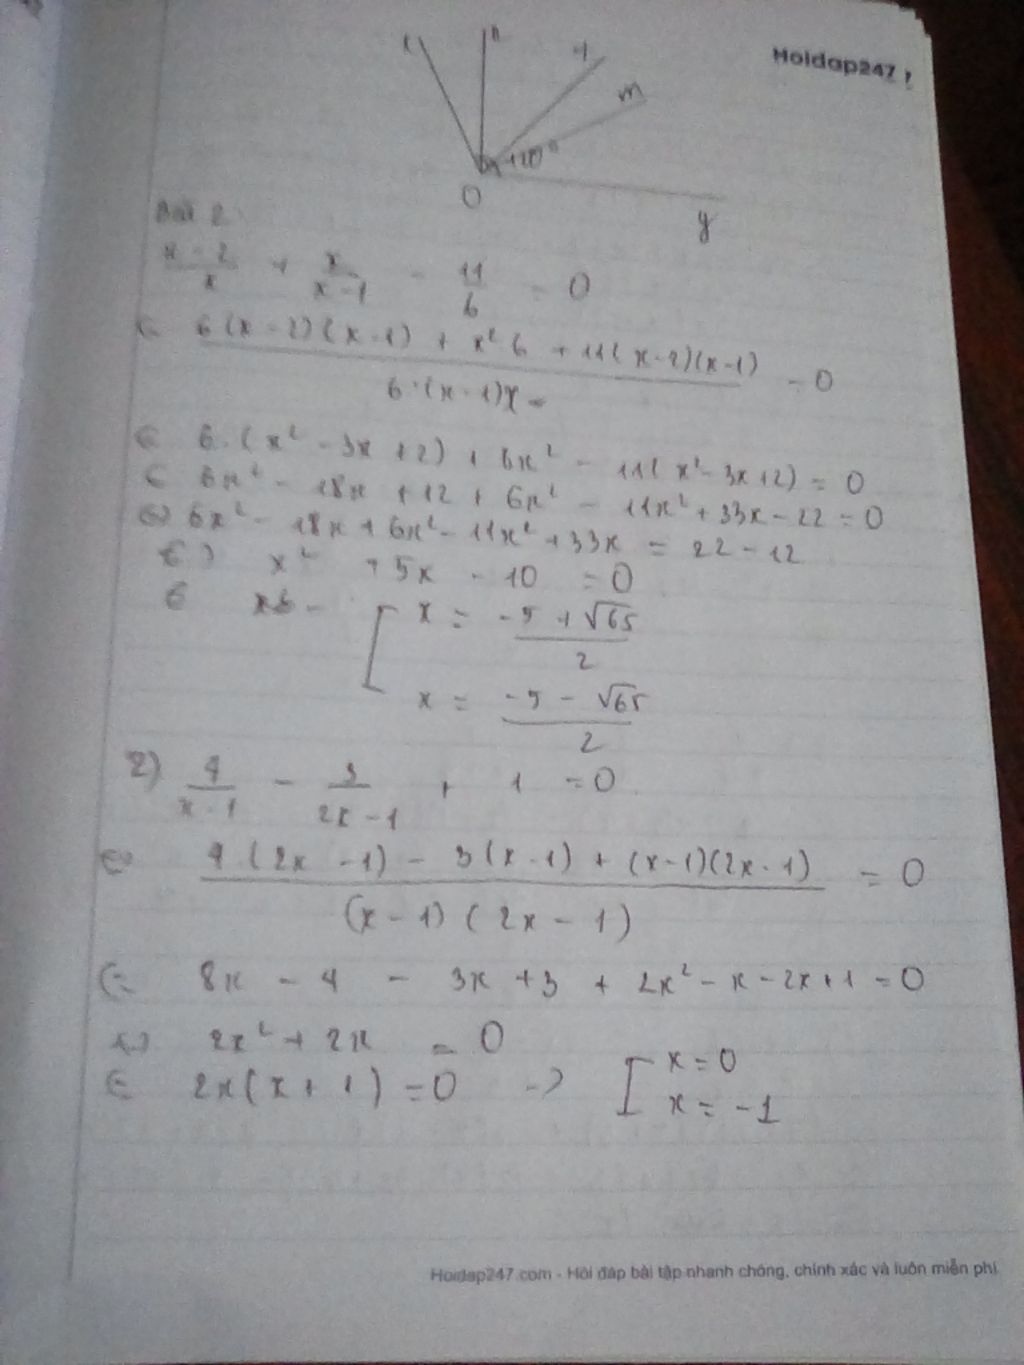 Hoidap247
n
t
m
120°
O
y
Bài 2
x - 2 / x + x / x - 1 - 11 / 6 = 0
6(x - 2)(x - 1) + x² 6 + 11(x - 2)(x - 1) / 6·(x - 1)x = 0
6·(x² - 3x + 2) + 6x² - 11(x² - 3x + 2) = 0
6x² - 18x + 12 + 6x² - 11x² + 33x - 22 = 0
⇔ 6x² - 18x + 6x² - 11x² + 33x = 22 - 12
x² + 5x - 10 = 0
[ x = -5 + √65 / 2
x = -5 - √65 / 2
2) 4 / x - 1 - 3 / 2x - 1 + 1 = 0
⇔ 4(2x - 1) - 3(x - 1) + (x - 1)(2x - 1) / (x - 1)(2x - 1) = 0
8x - 4 - 3x + 3 + 2x² - x - 2x + 1 = 0
⇔ 2x² + 2x = 0
2x(x + 1) = 0 -> [ x = 0
x = -1
Hoidap247.com - Hỏi đáp bài tập nhanh chóng, chính xác và luôn miễn phí